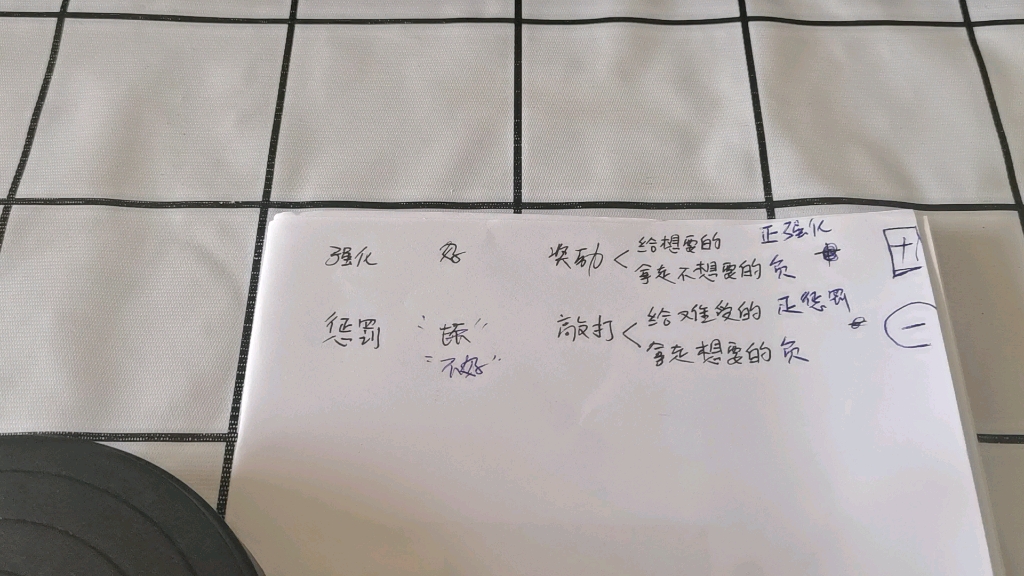 强化 好 奖励 给想要的 正强化 +
拿走不想要的 负
惩罚 敲打 给难受的 正惩罚 -
"不好" 拿走想要的 负